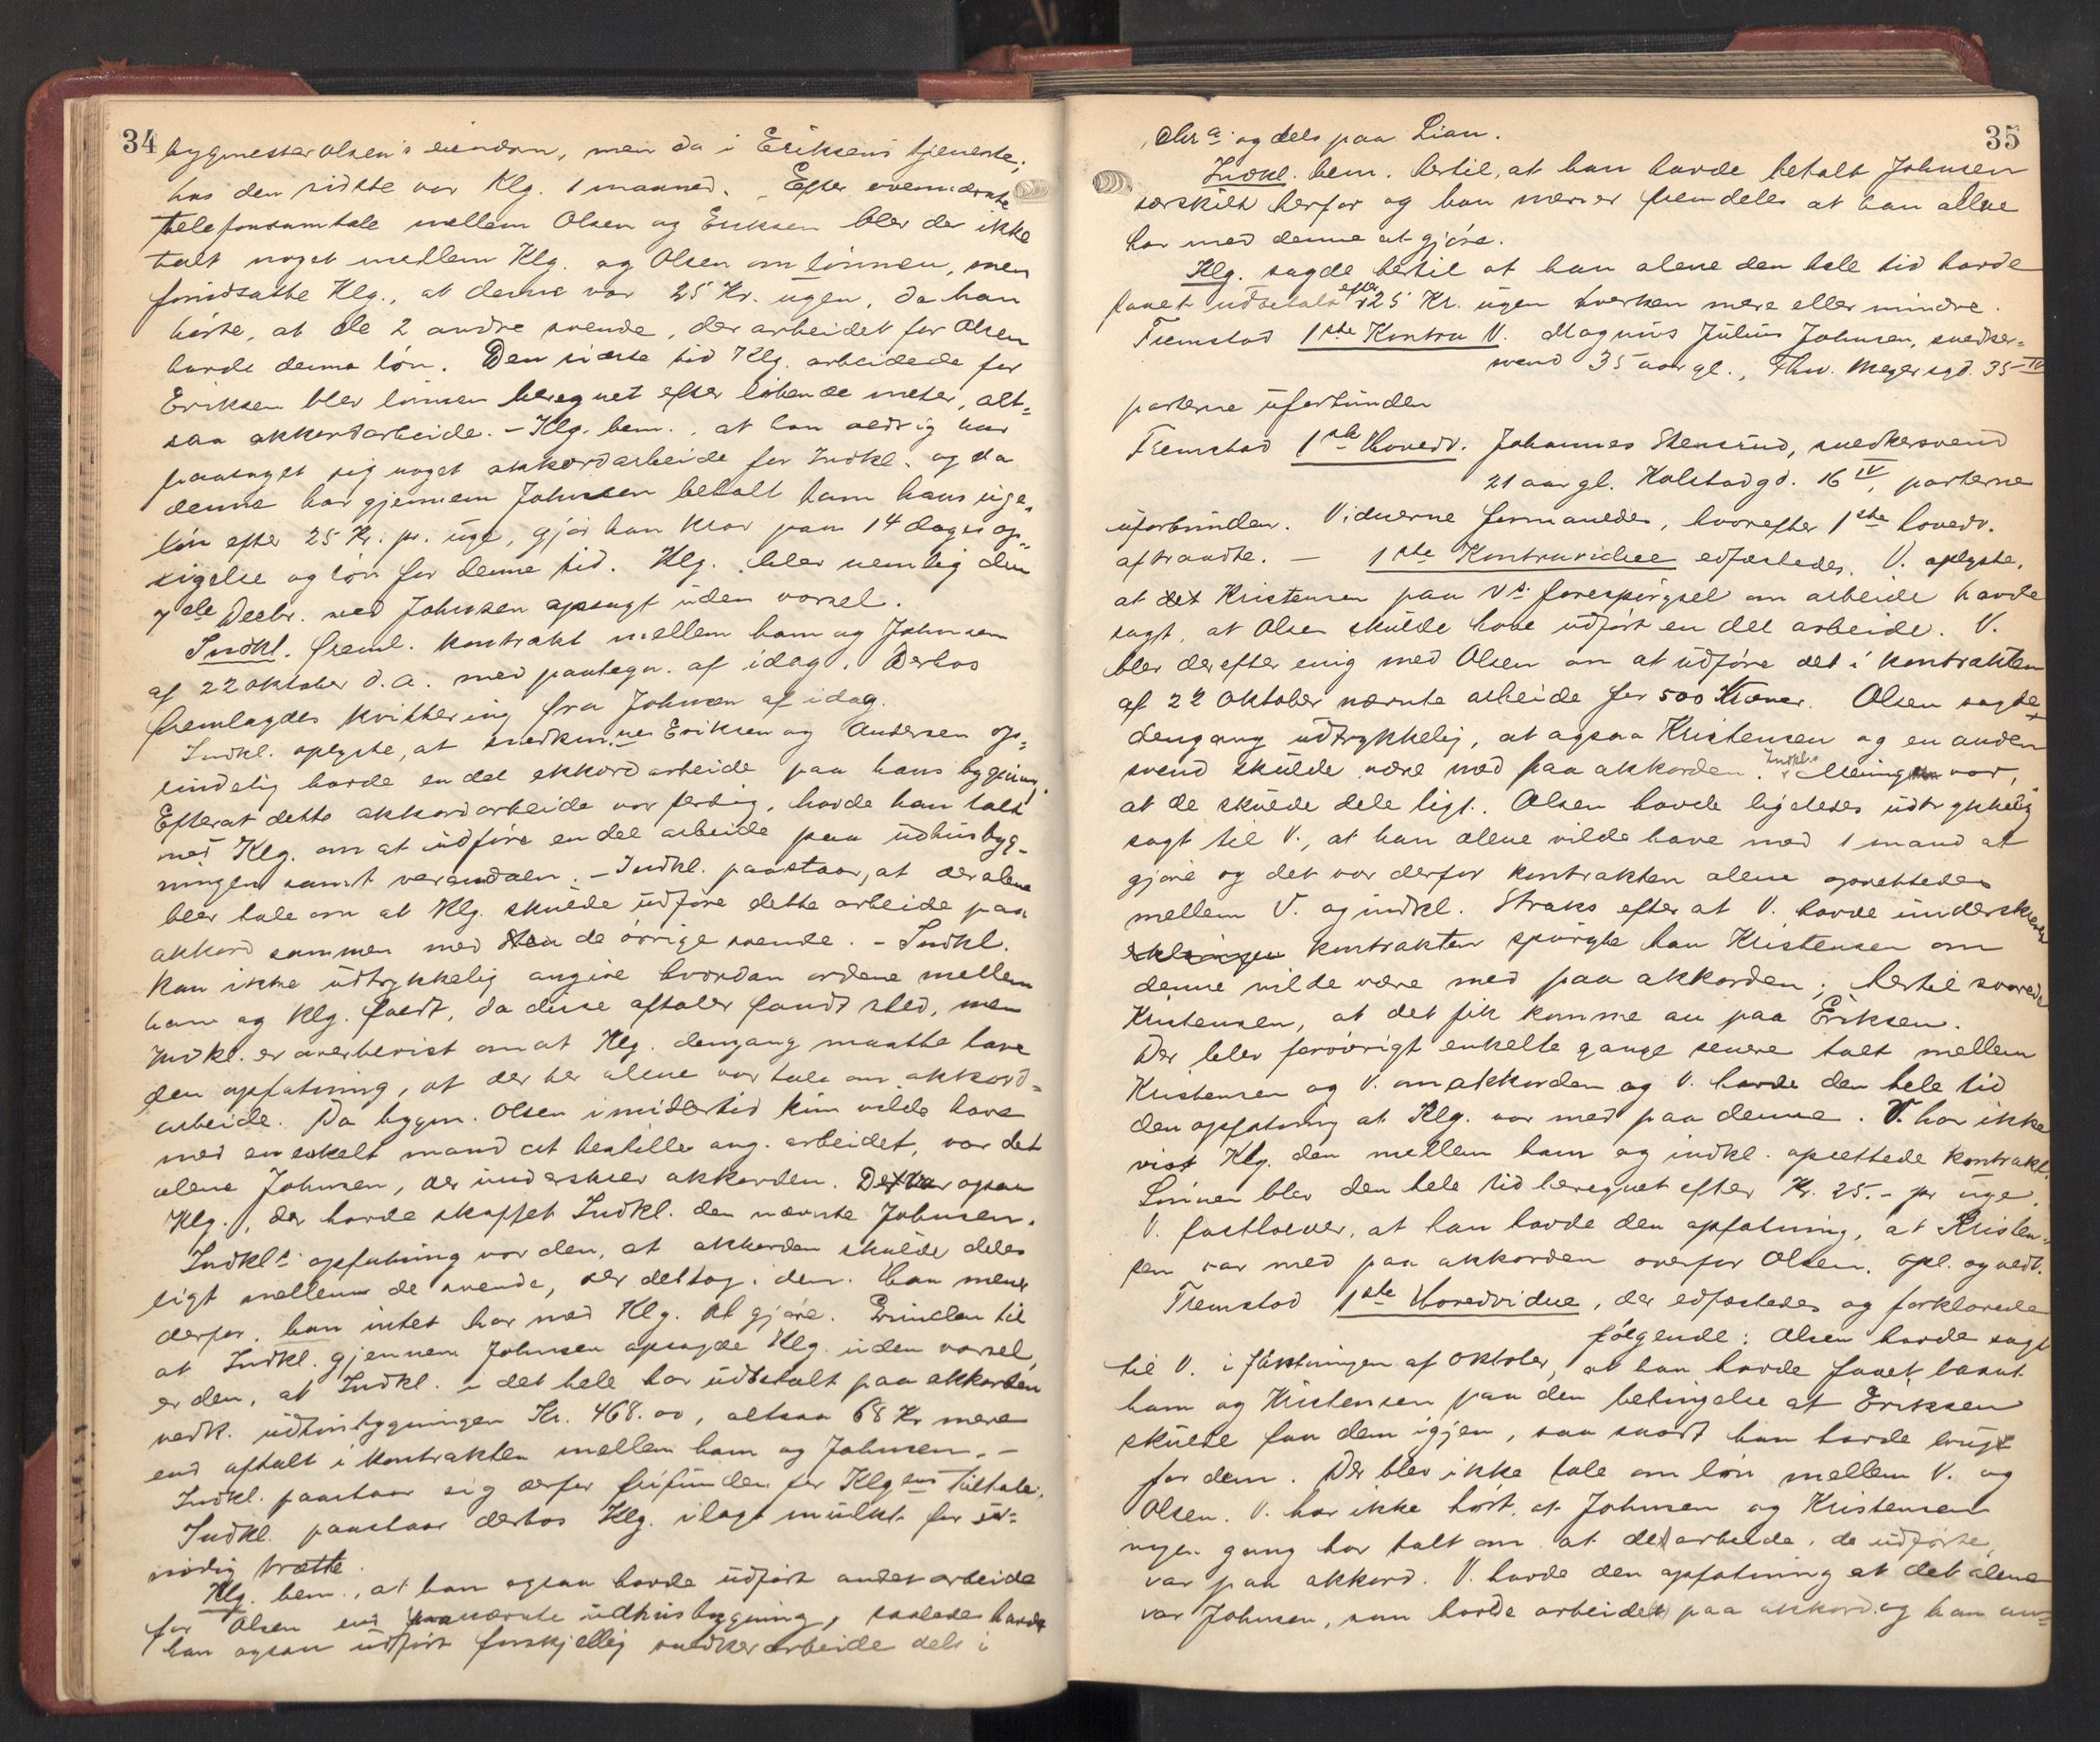 34
bygmester Olsen's eiendom, men da i Eriksens tjeneste;
hos den sidste var Klg. 1 maaned. Efter ovennævnte
telefonsamtale mellem Olsen og Eriksen blev der ikke
talt noget mellem Klg. og Olsen om lønnen, men
forudsatte Klg., at denne var 25 Kr. ugen, da han
hørte, at de 2 andre svende, der arbeidet for Olsen
havde denne løn. Den sidste tid Klg. arbeidede for
Eriksen blev lønnen beregnet efter løbende meter, alt=
saa akkordarbeide. – Klg. bem., at han aldrig har
paataget sig noget akkordarbeide for Indkl. og da
denne har gjennem Johnsen betalt ham hans uge=
løn efter 25 Kr. pr. uge, gjør han krav paa 14 dages op=
sigelse og løn for denne tid. Klg. blev nemlig den
7de Decbr. ved Johnsen opsagt uden varsel.
Indkl. freml. kontrakt mellem ham og Johnsen
af 22 oktober d.a. med paategn. af idag. Derhos
fremlagdes kvittering fra Johnsen af idag.
Indkl. oplyste, at snedkerne Eriksen og Andersen op=
rindelig havde en del akkordarbeide paa hans bygning.
Efterat dette akkordarbeide var færdig, havde han talt
med Klg. om at udføre en del arbeide paa udhusbyg=
ningen samt verandaen. – Indkl. paastaar, at der alene
blev tale om at Klg. skulde udføre dette arbeide paa
akkord sammen med de øvrige svende. – Indkl.
kan ikke udtrykkelig angive hvordan ordene mellem
ham og Klg. faldt, da disse aftaler fandt sted, men
Indkl. er overbevist om at Klg. dengang maatte have
den opfatning, at der her alene var tale om akkord=
arbeide. Da bygm. Olsen imidlertid kun vilde have
med en enkelt mand at bestille ang. arbeidet, var det
alene Johnsen, der underskrev akkorden. Det var ogsaa
Klg., der havde skaffet Indkl. den nævnte Johnsen.
Indkls opfatning var den, at akkorden skulde deles
ligt mellem de svende, der deltog i den. Han mener
derfor, han intet har med Klg. at gjøre. Grunden til
at Indkl. gjennem Johnsen opsagde Klg. uden varsel,
er den, at Indkl. i det hele har udbetalt paa akkorden
vedk. udhusbygningen Kr. 468.00, altsaa 68 Kr mere
end aftalt i kontrakten mellem ham og Johnsen. –
Indkl. paastaar sig derfor frifunden for Klgens tiltale.
Indkl. paastaar derhos Klg. ilagt mulkt for un=
nødig trætte.
Klg. bem., at han ogsaa havde udført andet arbeide
for Olsen end nævnte udhusbygning, saaledes havde
han ogsaa udført forskjellig snedkerarbeide dels i
35
Chr.a og dels paa Lian.
Indkl. bem. hertil, at han havde betalt Johnsen
særskilt herfor og han mener fremdeles at han alene
har med denne at gjøre.
Klg. sagde hertil at han alene den hele tid havde
faaet udbetalt efter 25 Kr. ugen hverken mere eller mindre.
Fremstod 1ste Kontra V. Magnus Julius Johnsen, snedker=
svend 35 aar gl., Thv. Meyersgd. 35 IV
parterne uforbunden
Fremstod 1ste Hovedv. Johannes Stensrud, snedkersvend
21 aar gl. Kalstadgd. 16 IV, parterne
uforbunden. Vidnerne formanedes, hvorefter 1ste hovedv.
aftraadte. – 1ste Kontravidne edfæstedes. V. oplyste,
at Kristensen paa Vs forespørgsel om arbeide havde
sagt, at Olsen skulde have udført en del arbeide. V.
blev derefter enig med Olsen om at udføre det i kontrakten
af 22 oktober nævnte arbeide for 500 Kroner. Olsen sagde
dengang udtrykkelig, at ogsaa Kristensen og en anden
svend skulde være med paa akkorden. Indkls Mening var,
at de skulde dele ligt. Olsen havde ligeledes udtrykkelig
sagt til V., at han alene vilde have med 1 mand at
gjøre og det var derfor kontrakten alene oprettedes
mellem V. og indkl. Straks efter at V. havde underskrevet
kontrakten spurgte han Kristensen om
denne vilde være med paa akkorden; hertil svarede
Kristensen, at det fik komme an paa Eriksen.
Der blev forøvrigt enkelte gange senere talt mellem
Kristensen og V. om akkorden og V. havde den hele tid
den opfatning at Klg. var med paa denne. V. har ikke
vist Klg. den mellem ham og indkl. oprettede kontrakt.
Lønnen blev den hele tid beregnet efter Kr. 25.- pr uge.
V. fastholder, at han havde den opfatning, at Kristen=
sen var med paa akkorden overfor Olsen. Opl. og vedt.
Fremstod 1ste Hovedvidne, der edfæstedes og forklarede
følgende: Olsen havde sagt
til V. i slutningen af oktober, at han havde faaet laant
ham og Kristensen paa den betingelse at Eriksen
skulde faa dem igjen, saa snart han havde brug
for dem. Der blev ikke tale om løn mellem V. og
Olsen. V. har ikke hørt, at Johnsen og Kristensen
nogen gang har talt om at det arbeide, de udførte,
var paa akkord. V. havde den opfatning at det alene
var Johnsen, som havde arbeidet paa akkord og han an=